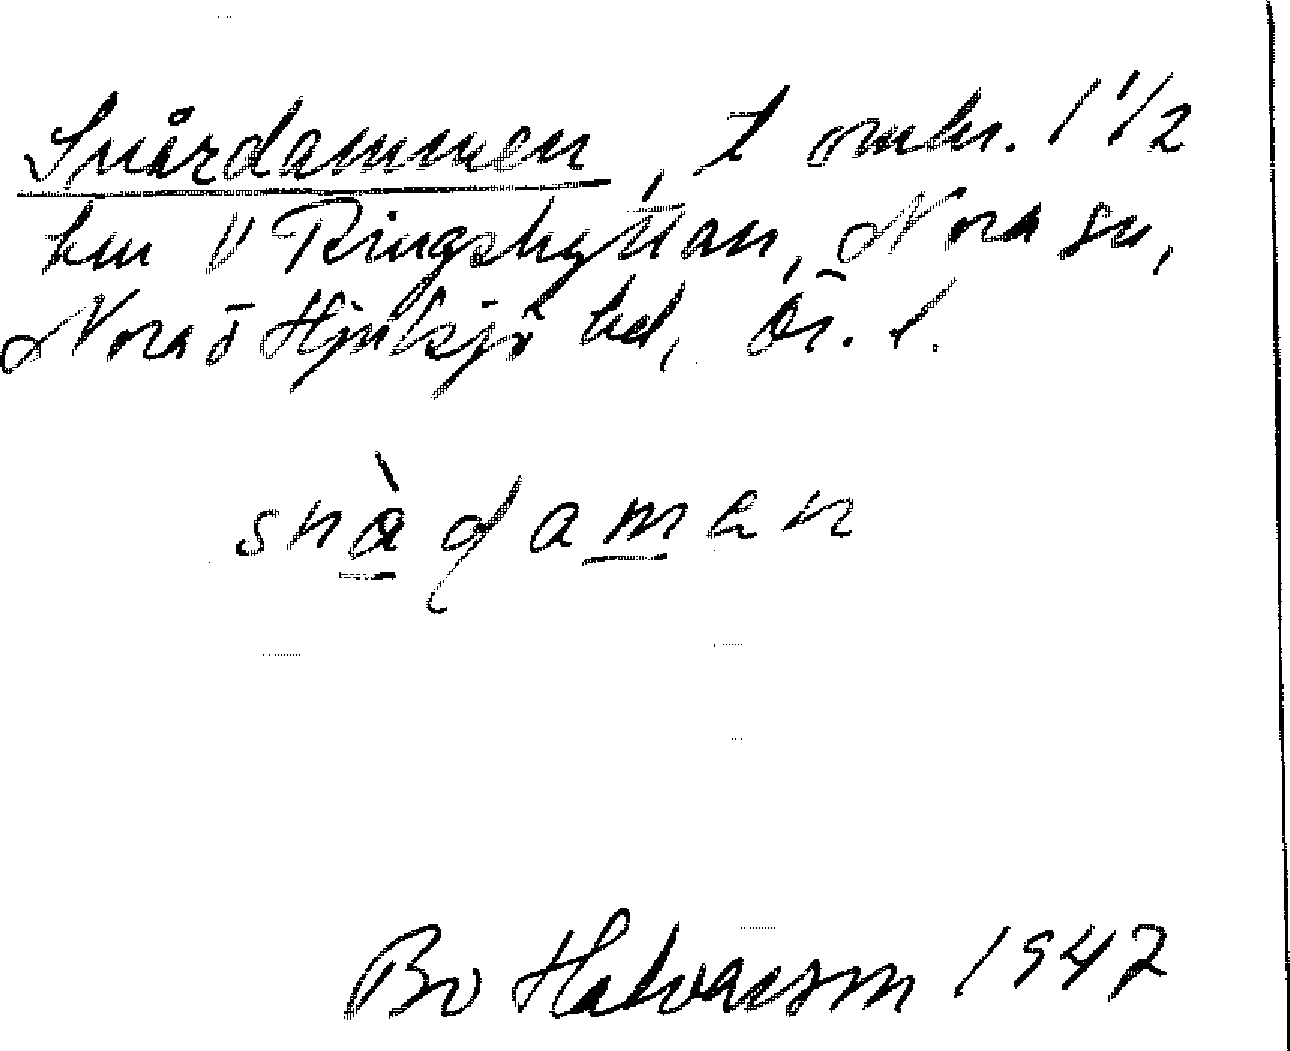 Snårdammen, t omkr. 1 1/2
km V Ringshyttan, Nora sn,
Nora o Hjulsjö bd, Ör. l.
snàdaman
Bo Halvarsson 1947